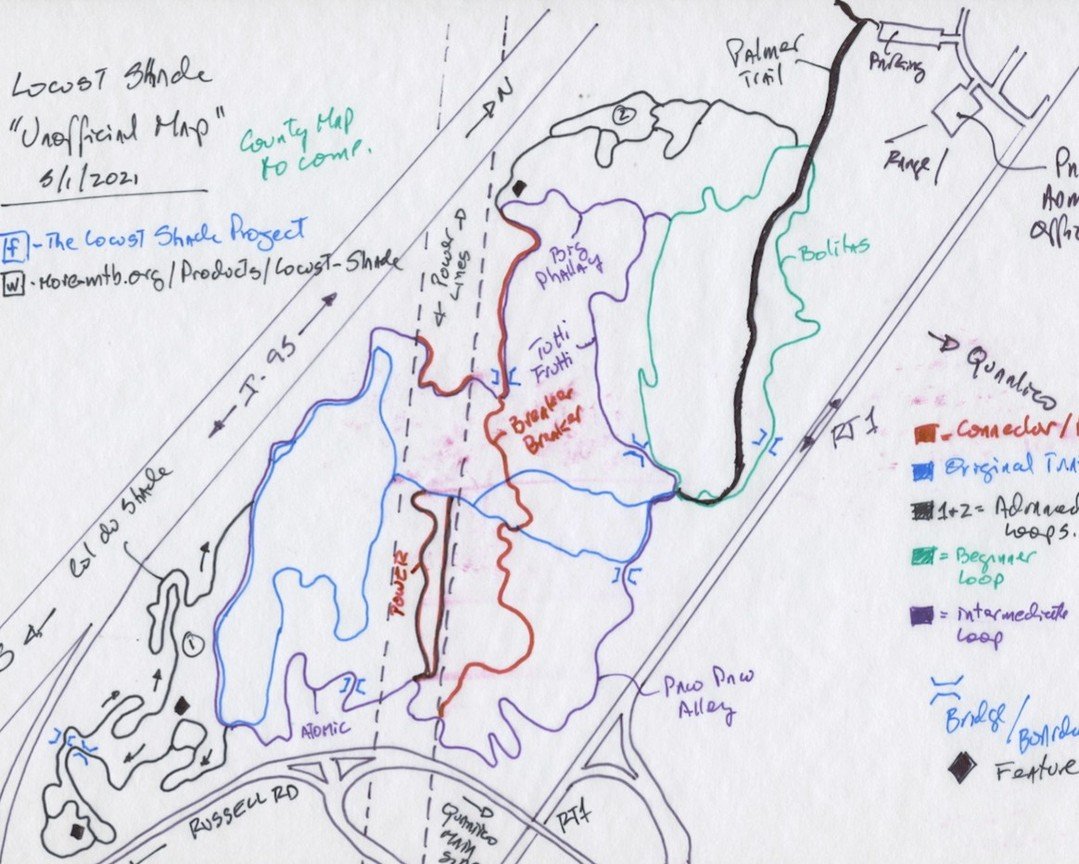 Locust Shade
"Unofficial Map"
5/1/2021
County Map
to comp.
f - The Locust Shade Project
w - more-mtb.org/Products/Locust-Shade
N
Power
Lines
I-95
Palmer
Trail
Parking
Range
2
Big
Phallay
Tutti
Frutti
Bolitas
Breaker
Breaker
RT 1
Quantico
= Connector/
Original
1+2 = Advanced
Loops.
= Beginner
Loop
= intermediate
Loop
Bridge/
Feature
Col do Shade
1
POWER
ATOMIC
Paco Paco
Alley
RUSSELL RD
Quantico
Main
RT1